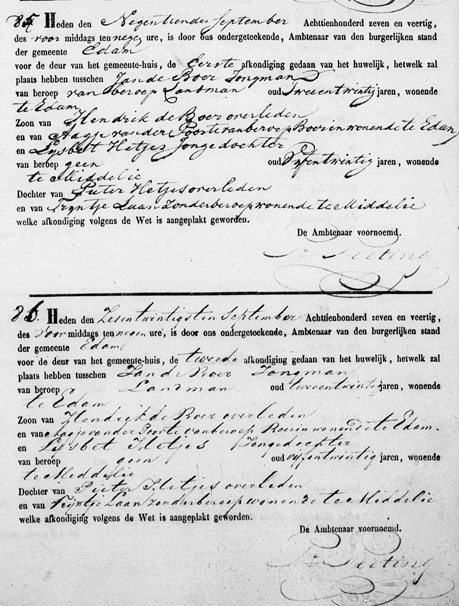 85. Heden den Negentienden September Achttienhonderd zeven en veertig,
des voor middags ten negen ure, is door ons ondergeteekende, Ambtenaar van den burgerlijken stand
der gemeente Edam
voor de deur van het gemeente-huis, de Eerste afkondiging gedaan van het huwelijk, hetwelk zal
plaats hebben tusschen Jan de Boer Jongman
van beroep van beroep Landman oud Tweeentwintig jaren, wonende
te Edam
Zoon van Hendrik de Boer overleden
en van Aagje van der Poorte van beroep Boerin wonende te Edam
en Lijsbet Hetjes Jongedochter
van beroep geen oud Vyfentwintig jaren, wonende
te Middelie
Dochter van Pieter Hetjes overleden
en van Trijntje Laan Zonder beroep wonende te Middelie
welke afkondiging volgens de Wet is aangeplakt geworden.
De Ambtenaar voornoemd.
86. Heden den Zesentwintigsten September Achttienhonderd zeven en veertig,
des Voor middags ten negen ure, is door ons ondergeteekende, Ambtenaar van den burgerlijken stand
der gemeente Edam
voor de deur van het gemeente-huis, de tweede afkondiging gedaan van het huwelijk, hetwelk zal
plaats hebben tusschen Jan de Boer Jongman
van beroep Landman oud tweeentwintig jaren, wonende
te Edam
Zoon van Hendrik de Boer overleden
en van Aagje van der Poorte van beroep Boerin wonende te Edam
en Lijsbet Hetjes Jongedochter
van beroep geen oud vyfentwintig jaren, wonende
te Middelie
Dochter van Pieter Hetjes overleden
en van Trijntje Laan zonder beroep wonende te Middelie
welke afkondiging volgens de Wet is aangeplakt geworden.
De Ambtenaar voornoemd.